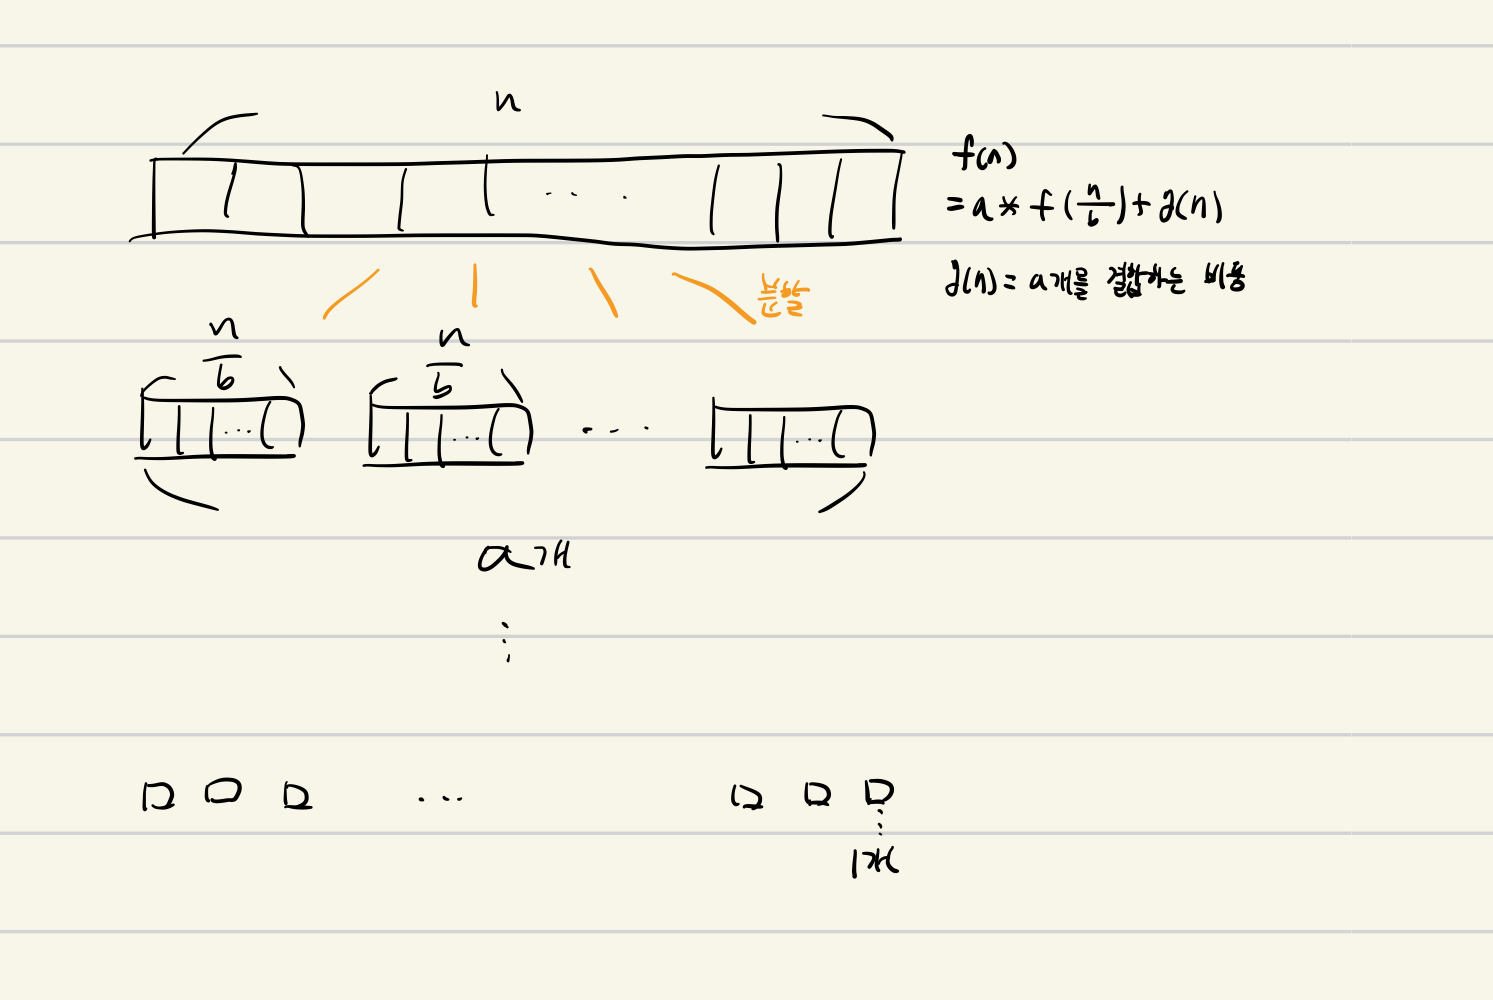 n
f(n)
= a * f(n/b) + g(n)
g(n) = a개를 결합하는 비용
분할
n/b n/b
...
a개
1개